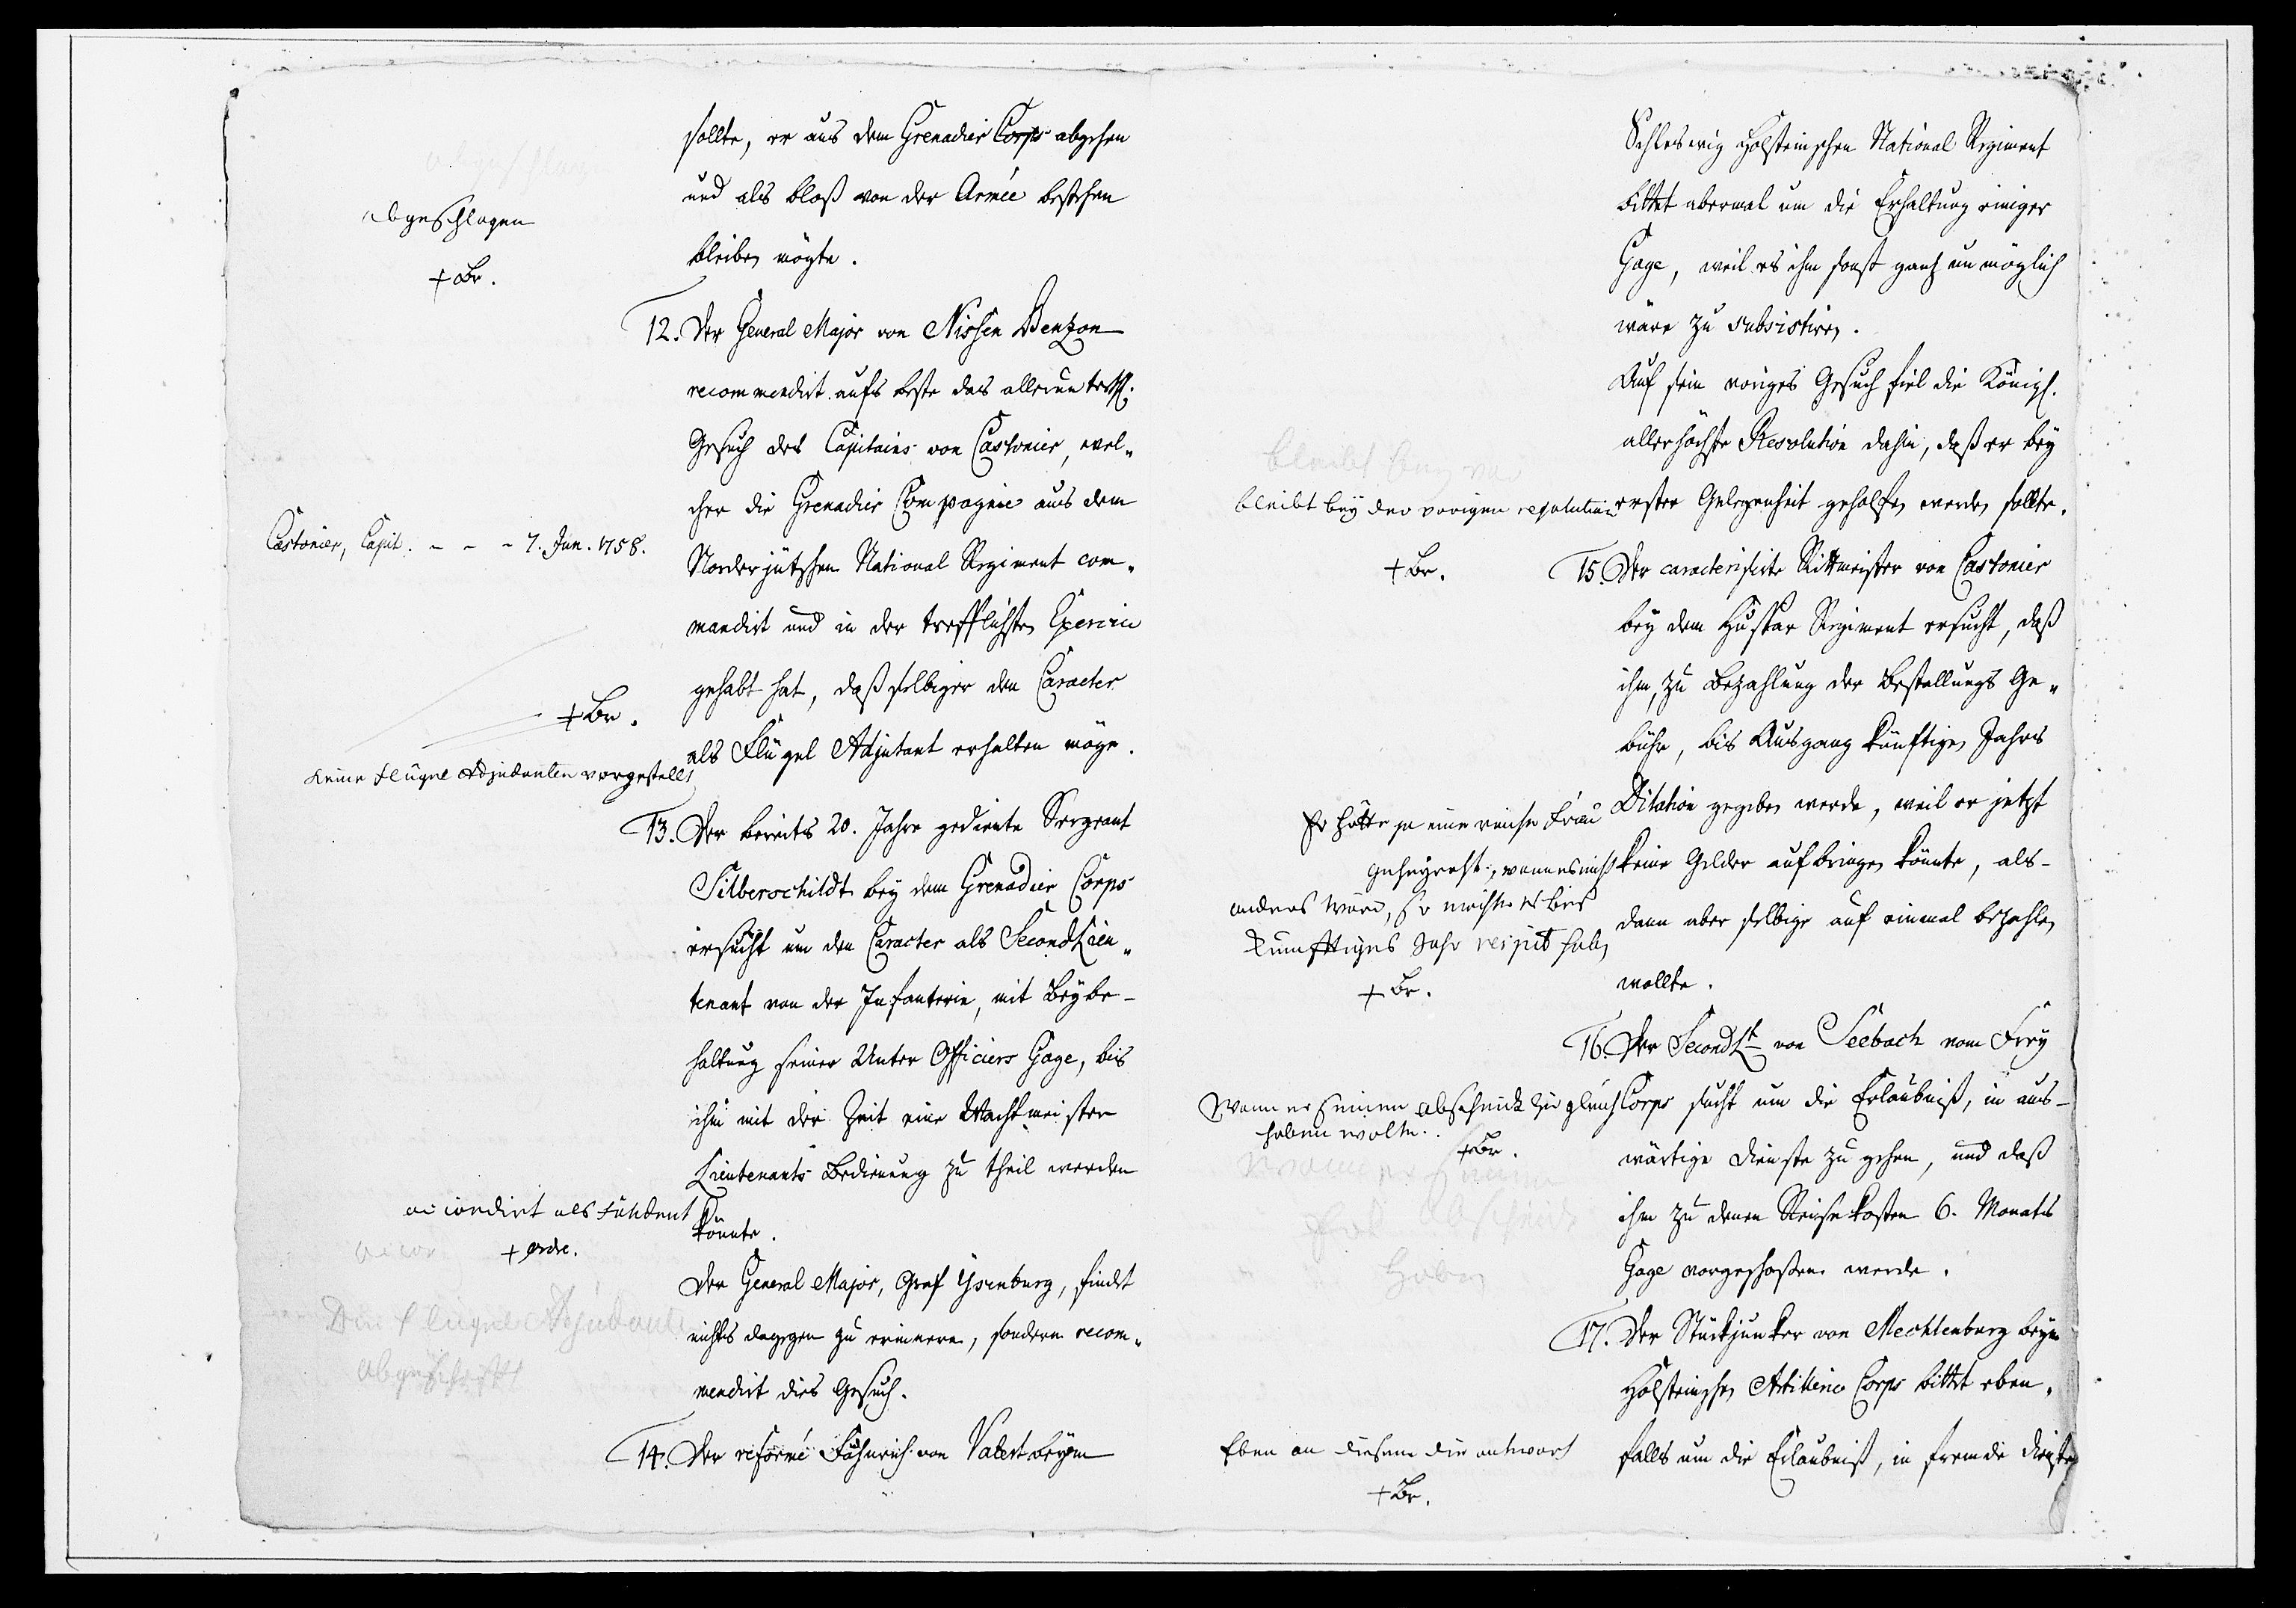 sollte, er aus dem Grenadier Corps abgehen
und als bloß von der Armée bestehen
bleiben mögte.
abgeschlagen
+ Br.
12. Der General Major von Nissen Benzon
recommendirt aufs beste das allerunterth.
Gesuch des Capitains von Castonier, wel„
cher die Grenadier Compagnie aus dem
Norderjütschen National Regiment com„
mandirt und in der trefflichsten Exercice
gehabt hat, daß selbiger den Caracter
als Flügel Adjutant erhalten möge.
Castonier, Capit. - - - 7. Jun. 1758.
+ Br.
Keine Flügel Adjudanten vorgestellt
13. Der bereits 20. Jahre gediente Sergeant
Silberschildt bey dem Grenadier Corps
ersucht um den Caracter als SecondLieu„
tenant von der Infanterie, mit Beybe-
haltung seiner Unter Officiers Gage, bis
ihm mit der Zeit eine Wachtmeister
Lieutenants Bedienung zu theil werden
könnte.
accordirt als
+ Ordr.
Der General Major, Graf Ysenburg, findet
nichts dagegen zu erinnern, sondern recom„
mendirt dies Gesuch.
Die Flügel Adjudant
14. Der reformé Fähnrich von Valert beym
Schleswig Holsteinschen National Regiment
bittet abermal um die Erhaltung einiger
Gage, weil es ihm sonst gantz unmöglich
wäre zu subsistiren.
Auf sein voriges Gesuch fiel die Königl.
allerhöchste Resolution dahin, daß er bey
erster Gelegenheit geholfen werden sollte.
bleibt bey der vorigen resolution
+ Br.
15. Der caracterisirte Rittmeister von Castonier
bey dem Hussar Regiment ersucht, daß
ihm, zu Bezahlung der Bestallungs Ge„
bühr, bis Ausgang künftigen Jahrs
Dilation gegeben werde, weil er jetzt
keine Gelder aufbringen könnte, als-
dann aber selbige auf einmal bezahlen
wollte.
Er hätte ja eine reiche Frau
geheyraht, wenn es nicht
anders wäre, so möchte er bies
kunfftiges Jahr respit haben
+ Br.
16. Der SecondLt von Seebach vom Frey
Corps sucht um die Erlaubniß, in aus-
wärtige Dienste zu gehen, und daß
ihm zu denen Reisekosten 6. Monats
Gage vorgeschoßen werde.
Wenn er seinen abscheidt zu gleich
haben wolte.
+ Br.
17. Der Stückjunker von Mechlenburg beym
Holsteinschen Artillerie Corps bittet eben„
falls um die Erlaubniß, in fremde Dienste
Eben an diesem die antwort
+ Br.